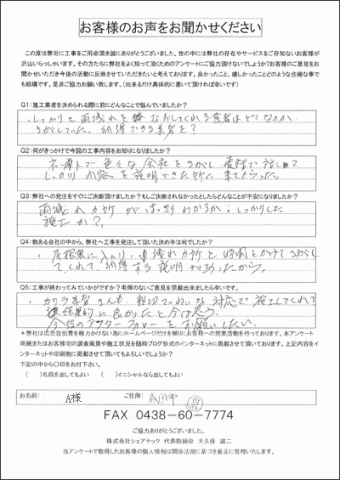 お客様のお声をお聞かせください
この度は弊社に工事をご用命頂き誠にありがとうございました。世の中には弊社の存在やサービスをご存知ないお客様が
沢山いらっしゃいます。その方たちに弊社をよく知って頂くためのアンケートにご協力頂けないでしょうか?お客様のご意見をお
聞かせいただき今後の活動に反映させていただきたいと考えております。良かったこと、嬉しかったことどのような些細な事で
も結構です。是非ご協力お願い致します。(出来るだけ具体的に書いて頂ければ幸いです)
Q1:施工業者を決められる際に前にどんなことで悩んでいましたか?
しっかりと雨漏れを なおしてくれる業者はどこなのか
さがしていた。納得できる業者を?
Q2:何がきっかけで今回の工事内容をお知りになりましたか?
ネットで色々な会社をさがし電話で話して
しっかり内容を説明できた所に
Q3:弊社への発注をすぐにご決断頂けましたか?もしご決断されなかったとしたらどんなことが不安になりましたか?
雨漏れカ所がはっきりわかるか。しっかりした
施工か?
Q4:数ある会社の中から、弊社へ工事を発注して頂いた決め手は何でしたか?
・屋根裏に入り、雨漏れカ所と時間をかけてさがし
てくれて、納得する説明があったから。
Q5:工事が終わってみていかがですか?率直のないご意見を頂戴出来ましたら幸いです。
対応で施工してくれて
結果的に良かったと今は思う。
今後のアフターフォローをお願いしたい。
アンケート
用紙またはお客様宅の調査風景や施工状況を随時ブログ形式のインターネットに掲載させて頂いております。上記内容をイ
ンターネットや印刷物に掲載させて頂いてもよろしいでしょうか?
下記の中から〇印をお付け下さい。
( )名前を出してもよい ( )イニシャルなら出してもよい
お名前: A様 ご住所:
FAX 0438-60-7774
ご協力ありがとうございました。
株式会社シェアテック 代表取締役 大久保 誠二
当アンケートで取得したお客様の個人情報は関係法令に基づき厳正に管理いたします。